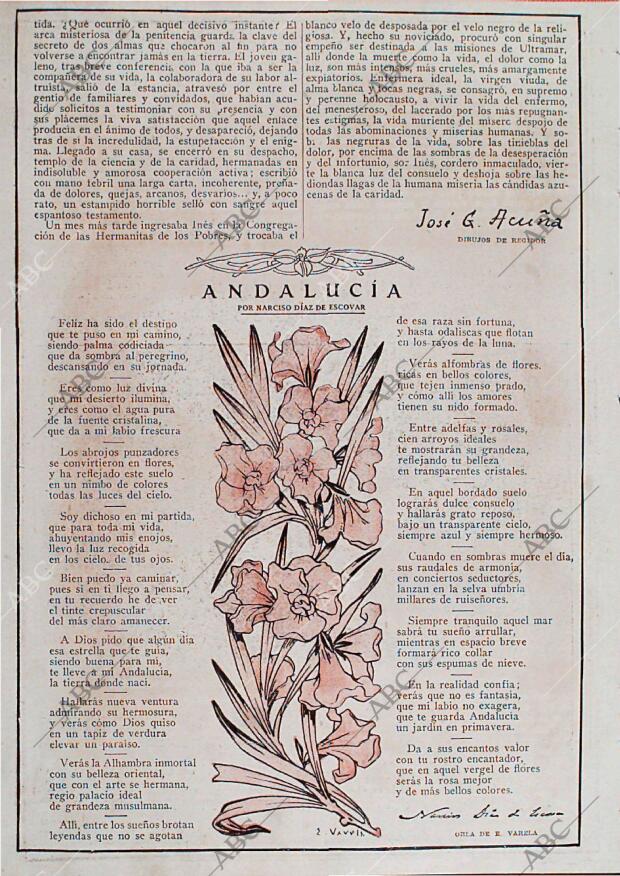 tida. ¿Qué ocurrió en aquel decisivo instante? El
arca misteriosa de la penitencia guarda la clave del
secreto de dos almas que chocaron al fin para no
volverse a encontrar jamás en la tierra. El joven ga-
leno, tras breve conferencia con la que iba a ser la
compañera de su vida, la colaboradora de su labor al-
truísta, salió de la estancia, atravesó por entre el
gentío de familiares y convidados, que habían acu-
dido solícitos a testimoniar con su presencia y con
sus plácemes la viva satisfacción que aquel enlace
producía en el ánimo de todos, y desapareció, dejando
tras de sí la incredulidad, la estupefacción y el enig-
ma. Llegado a su casa, se encerró en su despacho,
templo de la ciencia y de la caridad, hermanadas en
indisoluble y amorosa cooperación activa; escribió
con mano febril una larga carta, incoherente, preña-
da de dolores, quejas, arcanos, desvaríos... y, a poco
rato, un estampido horrible selló con sangre aquel
espantoso testamento.
Un mes más tarde ingresaba Inés en la Congrega-
ción de las Hermanitas de los Pobres, y trocaba el
blanco velo de desposada por el velo negro de la reli-
giosa. Y, hecho su noviciado, procuró con singular
empeño ser destinada a las misiones de Ultramar,
allí donde la muerte como la vida, el dolor como la
luz, son más intensos, más crueles, más amargamente
expiatorios. La enfermera ideal, la virgen viuda, de
alma blanca y tocas negras, se consagró, en supremo
y perenne holocausto, a vivir la vida del enfermo,
del menesteroso, del lacerado por los más repugnan-
tes estigmas, la vida muriente del mísero despojo de
todas las abominaciones y miserias humanas. Y so-
b. las negruras de la vida, sobre las tinieblas del
dolor, por encima de las sombras de la desesperación
y del infortunio, sor Inés, cordero inmaculado, vier-
te la blanca luz del consuelo y deshoja sobre las he-
diondas llagas de la humana miseria las cándidas azu-
cenas de la caridad.
José G. Acuña
DIBUJOS DE REGIDOR
ANDALUCÍA
POR NARCISO DÍAZ DE ESCOVAR
Feliz ha sido el destino
que te puso en mi camino,
siendo palma codiciada
que da sombra al peregrino,
descansando en su jornada.
Eres como luz divina
que mi desierto ilumina,
y eres como el agua pura
de la fuente cristalina,
que da a mi labio frescura
Los abrojos punzadores
se convirtieron en flores,
y ha reflejado este suelo
en un nimbo de colores
todas las luces del cielo.
Soy dichoso en mi partida,
que para toda mi vida,
ahuyentando mis enojos,
llevo la luz recogida
en los cielos de tus ojos.
Bien puedo ya caminar,
pues si en ti llego a pensar,
en tu recuerdo he de ver
el tinte crepuscular
del más claro amanecer.
A Dios pido que algún día
esa estrella que te guía,
siendo buena para mí,
te lleve a mi Andalucía,
la tierra donde nací.
Hallarás nueva ventura
admirando su hermosura,
y verás cómo Dios quiso
en un tapiz de verdura
elevar un paraíso.
Verás la Alhambra inmortal
con su belleza oriental,
que con el arte se hermana,
regio palacio ideal
de grandeza musulmana.
Allí, entre los sueños brotan
leyendas que no se agotan
de esa raza sin fortuna,
y hasta odaliscas que flotan
en los rayos de la luna.
Verás alfombras de flores,
ricas en bellos colores,
que tejen inmenso prado,
y cómo allí los amores
tienen su nido formado.
Entre adelfas y rosales,
cien arroyos ideales
te mostrarán su grandeza,
reflejando tu belleza
en transparentes cristales.
En aquel bordado suelo
lograrás dulce consuelo
y hallarás grato reposo,
bajo un transparente cielo,
siempre azul y siempre hermoso.
Cuando en sombras muere el día,
sus raudales de armonía,
en conciertos seductores,
lanzan en la selva umbría
millares de ruiseñores.
Siempre tranquilo aquel mar
sabrá tu sueño arrullar,
mientras en espacio breve
formará rico collar
con sus espumas de nieve.
En la realidad confía;
verás que no es fantasía,
que mi labio no exagera,
que te guarda Andalucía
un jardín en primavera.
Da a sus encantos valor
con tu rostro encantador,
que en aquel vergel de flores
serás la rosa mejor
y de más bellos colores.
Narciso Díaz de Escovar
ORLA DE E. VARELA
E. VARELA
ABC